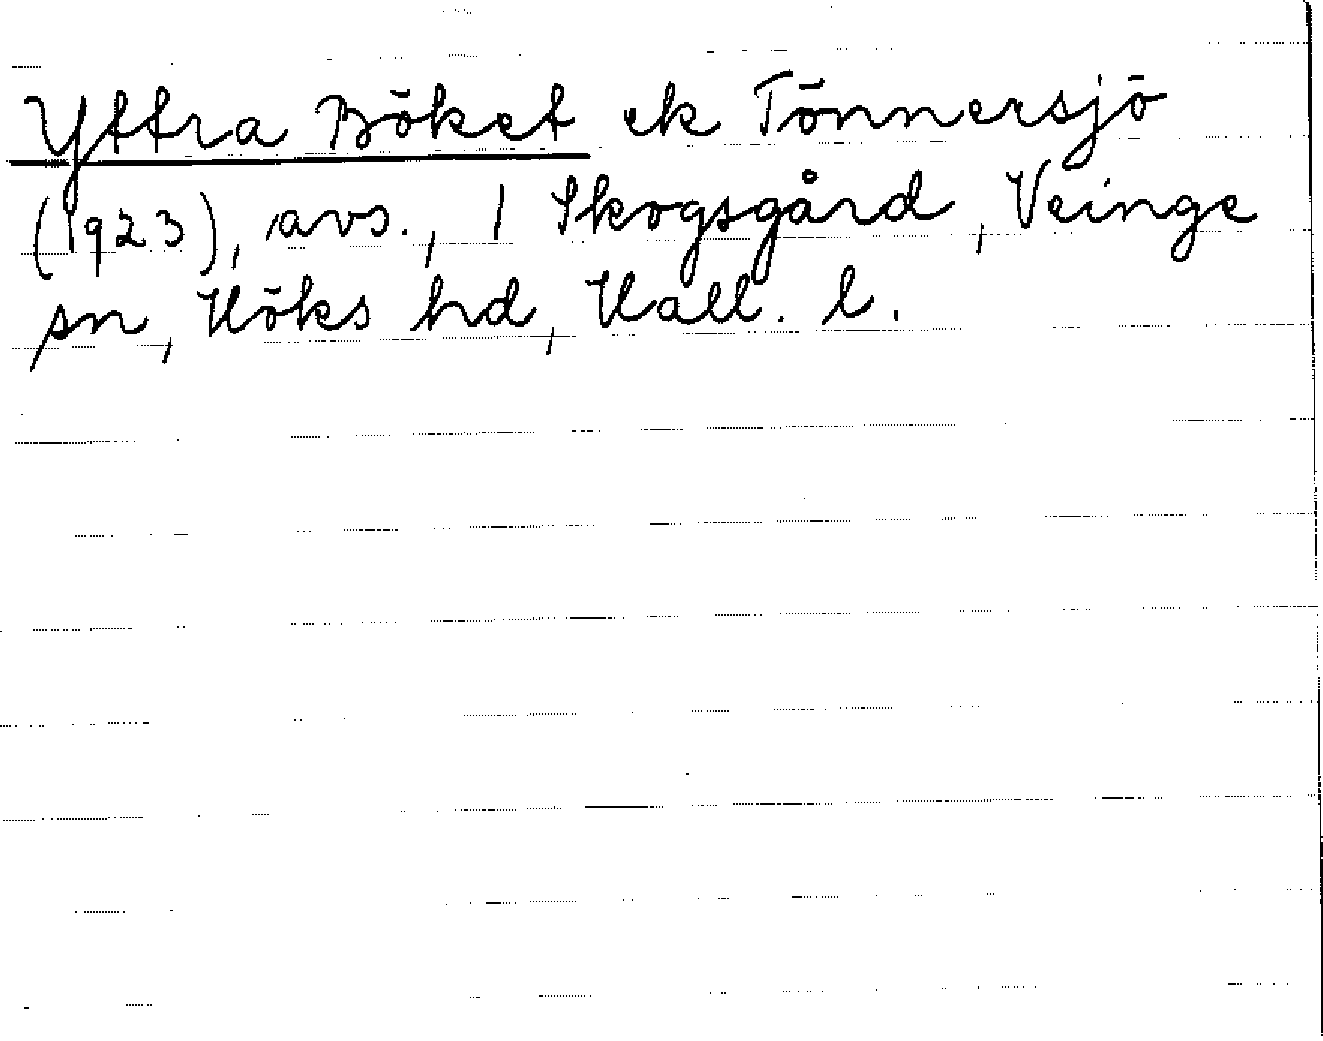 Yttra Böket ek Tönnersjö
(1923), avs., 1 Skogsgård, Veinge
sn, Höks hd, Hall. l.